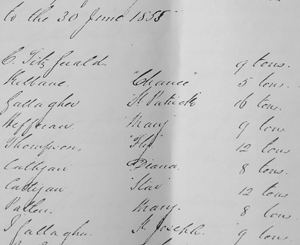 to the 30 June 1858
C. Fitz Gerald. 9 tons.
Kilbane "Chance" 5 tons
Gallagher St Patrick 16 tons
Heffernan "Mary" 9 tons
Thompson, 12 tons
Diana 8 tons.
"Star 12 tons
Patten Mary. 8 tons.
Gallagher St Joseph. 9 tons.